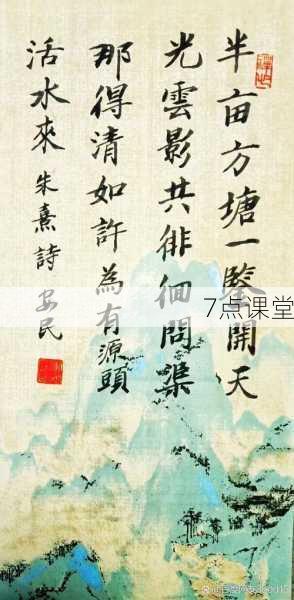 半亩方塘一鑒開天
光雲影共徘徊問渠
那得清如許為有源頭
活水來 朱熹詩 安民
7点课堂